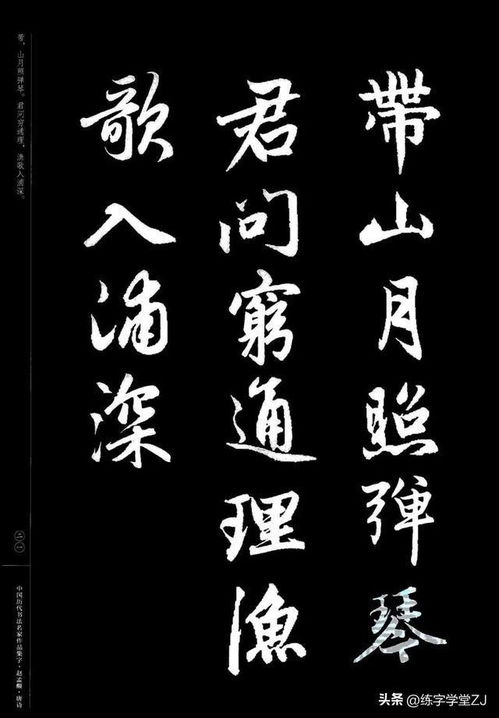 帶山月照弹琴
君问窮通理漁
歌入浦深
带，山月照弹琴。君问穷通理，渔歌入浦深。
二一
中国历代书法名家作品集字·赵孟頫·唐诗
头条 @练字学堂ZJ